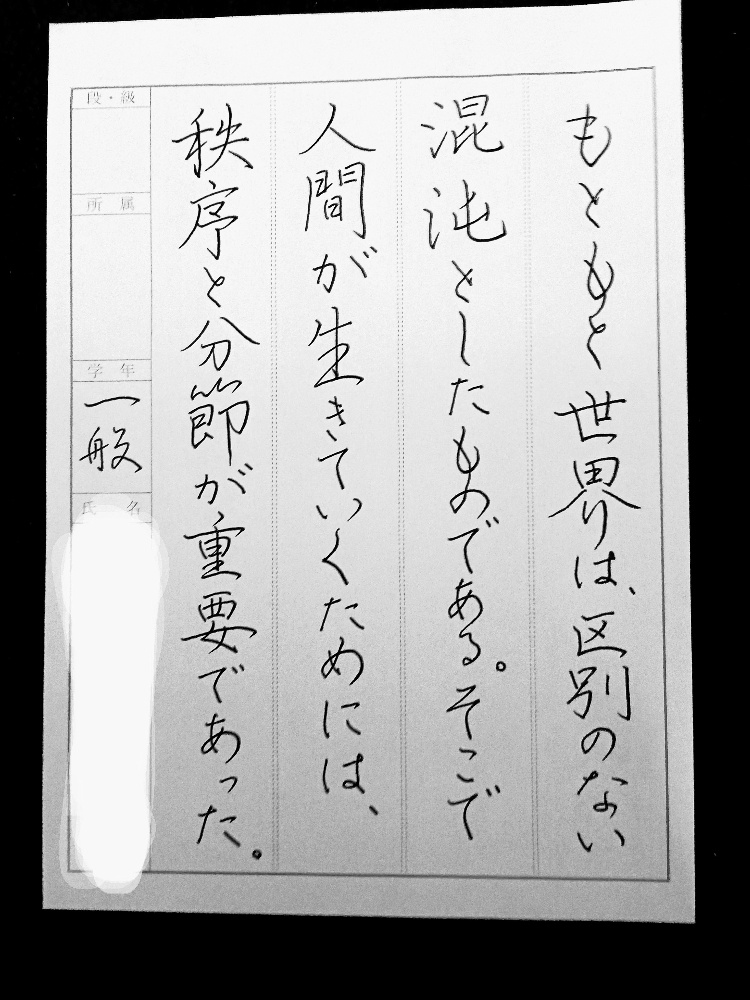 もともと世界は、区別のない
混沌としたものである。そこで
人間が生きていくためには、
秩序と分節が重要であった。
段・級
所属
学年
一般
氏名